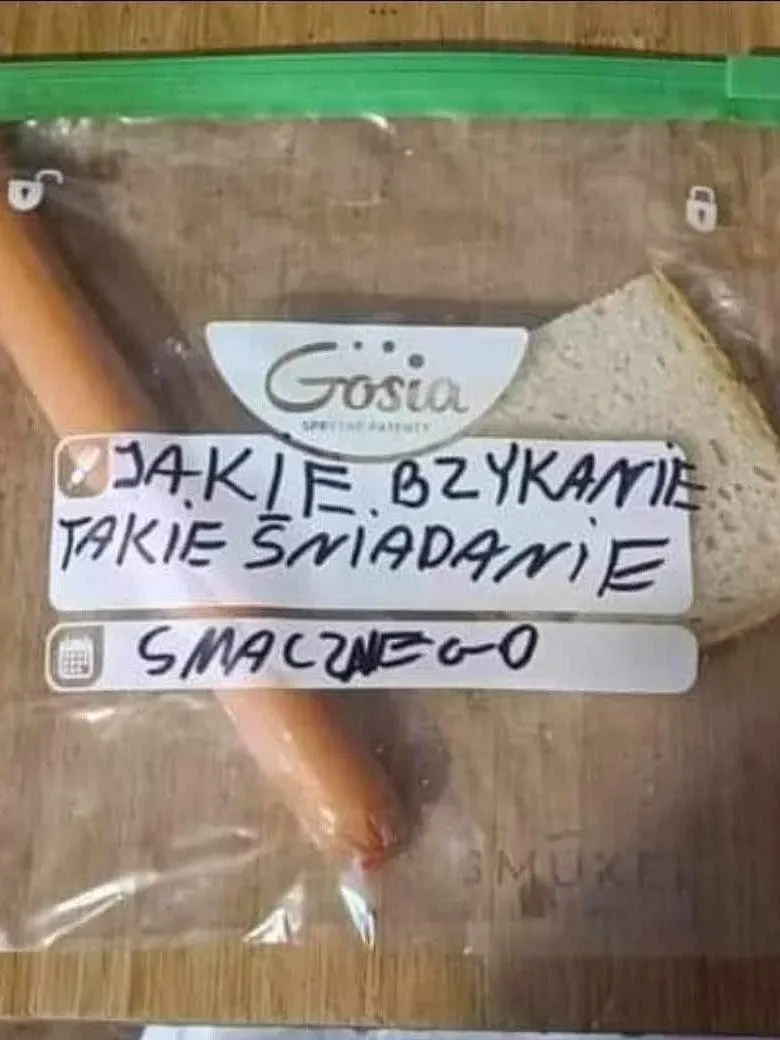 Gosia
SPRYTNE PATENTY
JAKIE BZYKANIE
TAKIE ŚNIADANIE
SMACZNEGO